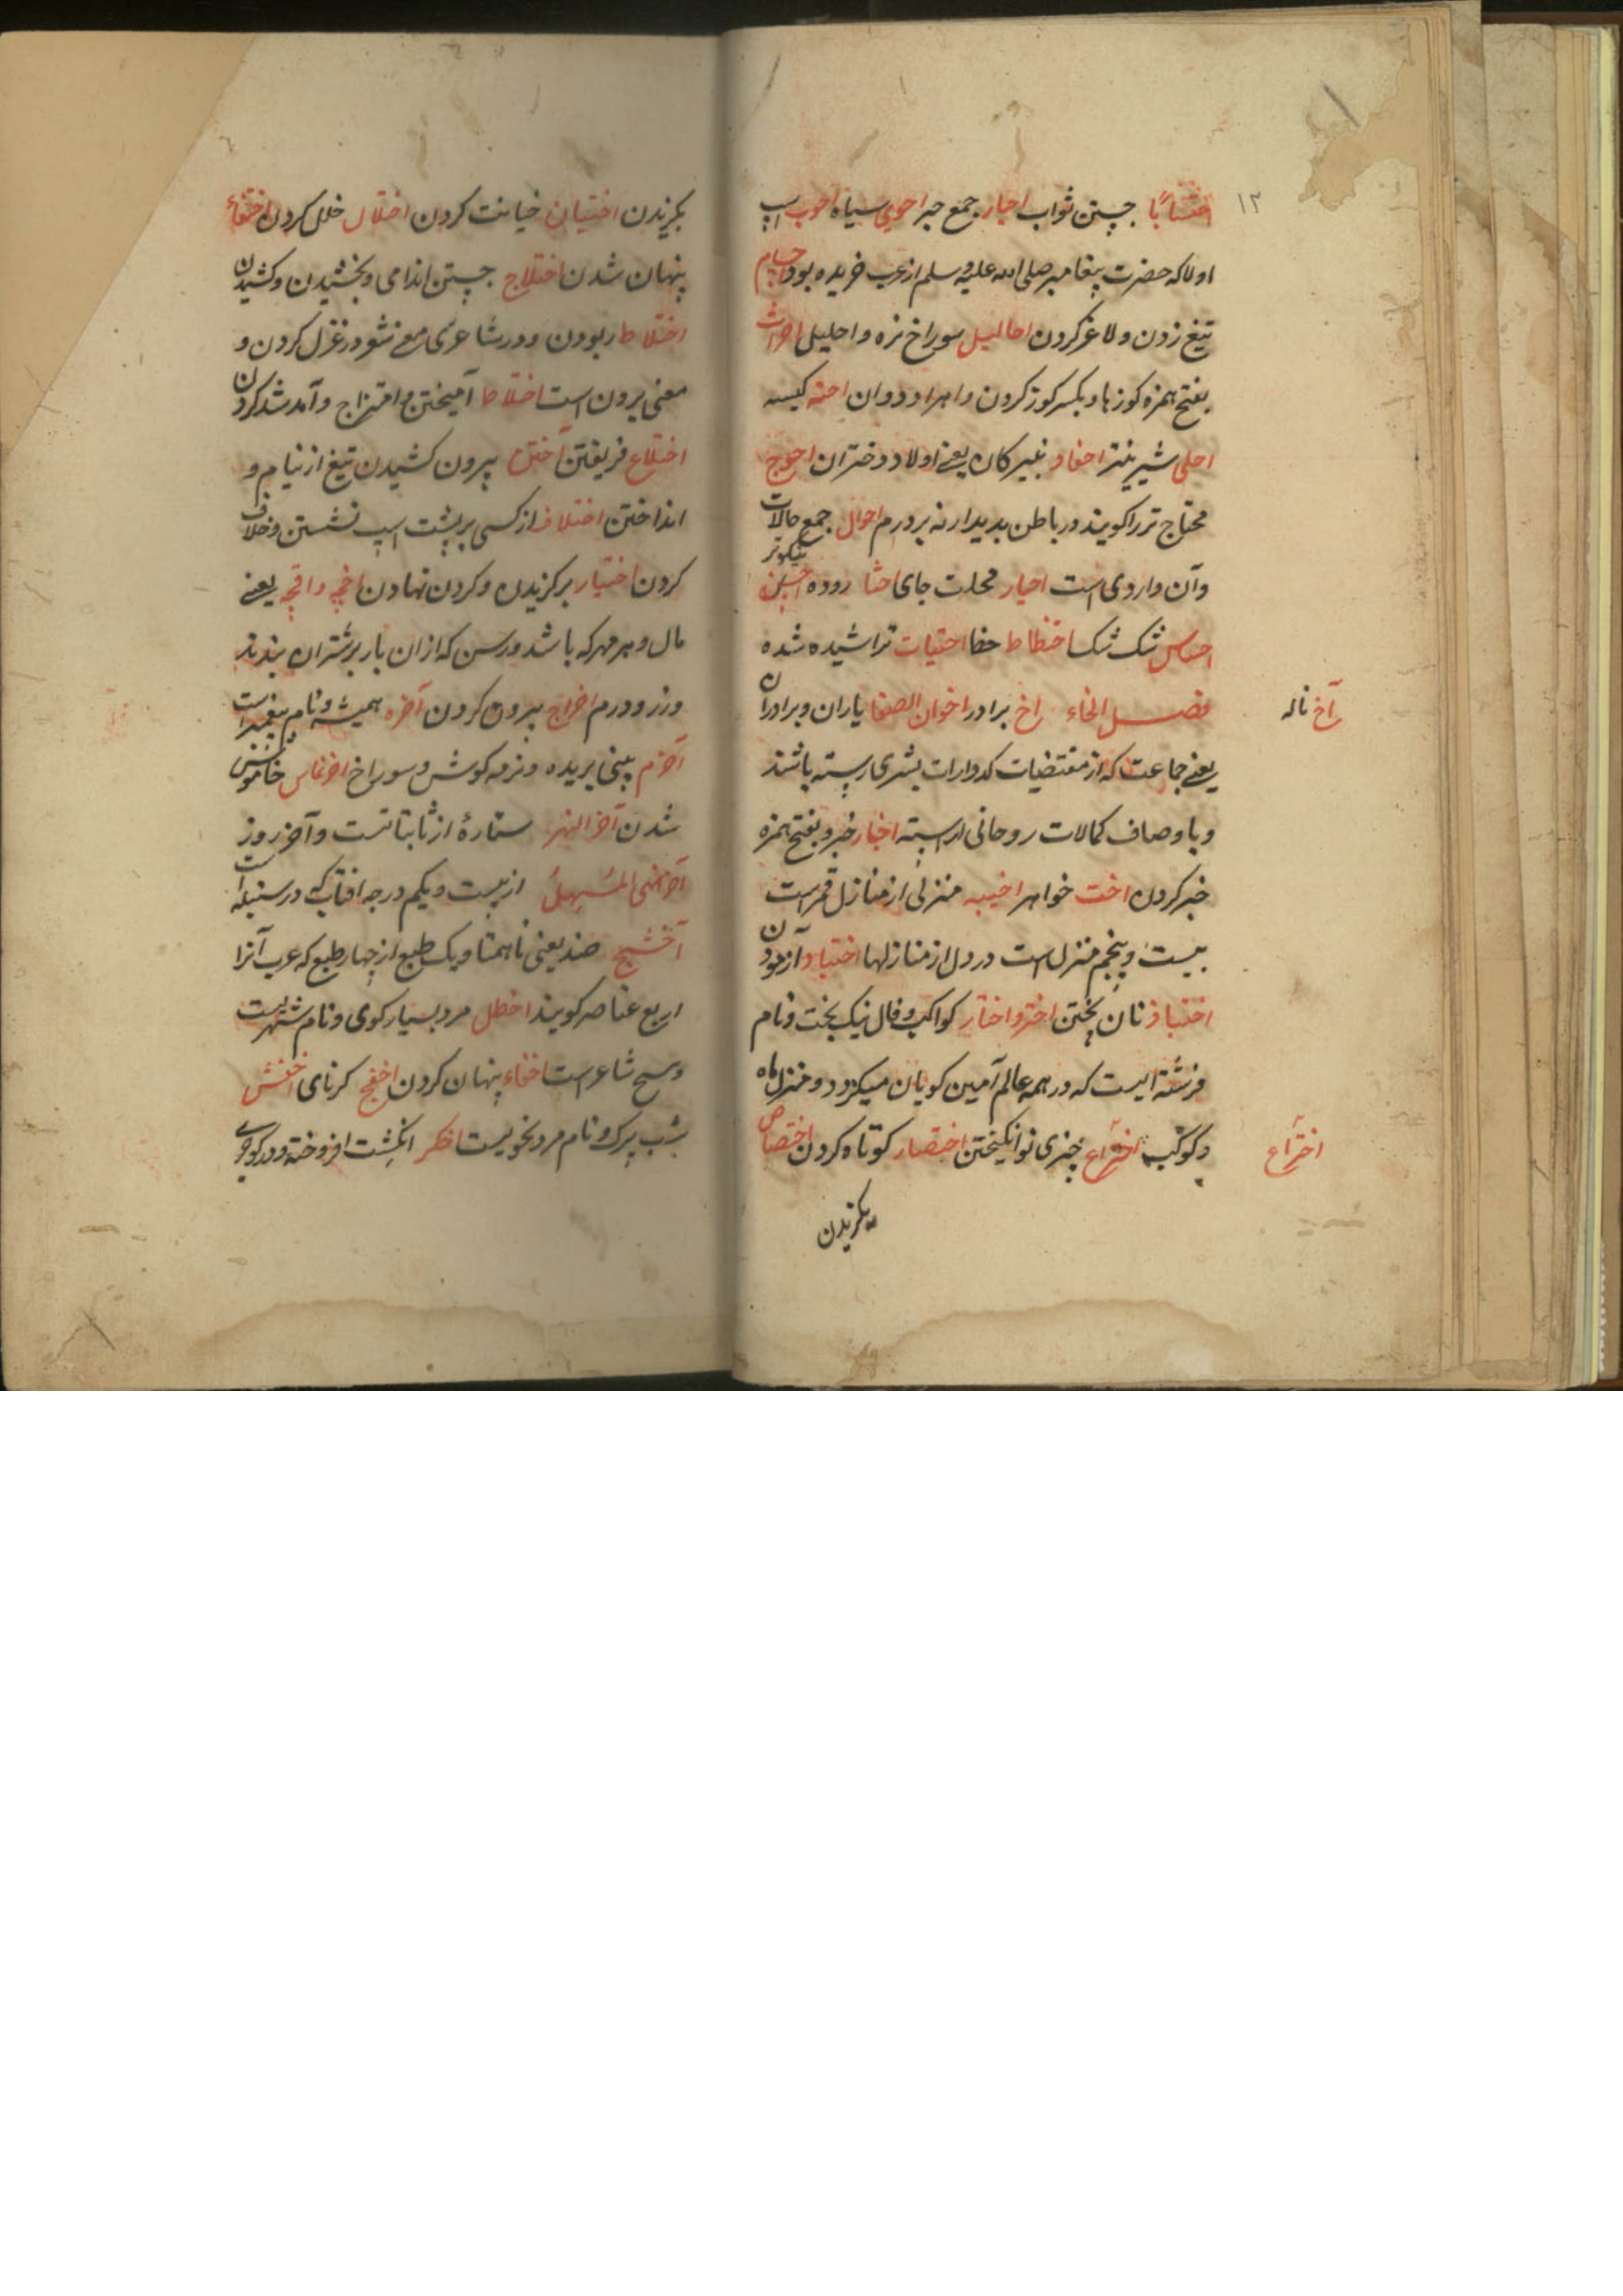 ۱۲
احتسابًا جستن ثواب احبار جمع حبر احوی سیاه احوب اسپ
اولا که حضرت پیغامبر صلی الله علیه و سلم از عرب خریده بود
تیغ زدن و لاغر کردن احالیل سوراخ نره و احلیل
بفتح همزه کوزها و بکسر کوز کردن احنه کیسه
احلی شیرینتر احفاد نبیرکان یعنی اولاد دختران احوج
محتاج تر را کویند در باطن احوال جمع حالات
وآن داروی است احیار محلات جای احشا روده احسن نیکوتر
احساس احتیات تراشیده شده
فصل الخاء اخ برادر اخوان الصفا یاران و برادران
آخ ناله
یعنی جماعت که از مقتضیات کدورات بشری رسته باشند
و با وصاف کمالات روحانی اخبار خبر و بفتح همزه
خبر کردن اخت خواهر اخبیه منزلی از منازل قمر است
بیست و پنجم منزل است در دل از منازلها اختیار آزمودن
اختباز نان پختن اختر و اختار کواکب و فال نیک بخت و نام
فرشته ایست که در همه عالم آمین کویان میکردد و منزل ماه
و کوکب اختراع چیزی نو انکیختن اختصار کوتاه کردن اختصاص
اختراع
بکزیدن
بکزیدن اختیان خیانت کردن اختلال خلل کردن اختفاء
پنهان شدن اختلاج جستن اندامی و بخشیدن و کشیدن
اختلاط ربودن و در شاعری معنی شعر در غزل کردن و
معنی برون است اختلاط آمیختن و امتزاج و آمد شد کردن
اختلاع فریفتن آختن بیرون کشیدن تیغ از نیام و
انداختن اختلاف از کسی بر پشت اسپ نشستن و خلاف
کردن اختیار برکزیدن و کردن نهادن اخچه و اقچه یعنی
مال و هر مهر که باشد و رسن که از ان بار بر شتران بندند
و زر و درم اخراج بیرون کردن آخره همیشه و نام پیغمبر است
آخرم بینی بریده و نرمه کوش و سوراخ اخرماس خاموش
شدن آخر النهر ستارهٔ از ثابتاتست و آخر روز
از بیست و یکم درجه افتاب که در سنبله است
آخشیج ضد یعنی ناهمتا و یک طبع از چهار طبع که عرب آنرا
اربع عناصر کویند اخطل مرد بسیار کوی و نام شهریست
و شاعر است اخفاء پنهان کردن کرنای اخفش
شب پرک و نام مرد نحویست اخکر انکشت افروخته و در کوی